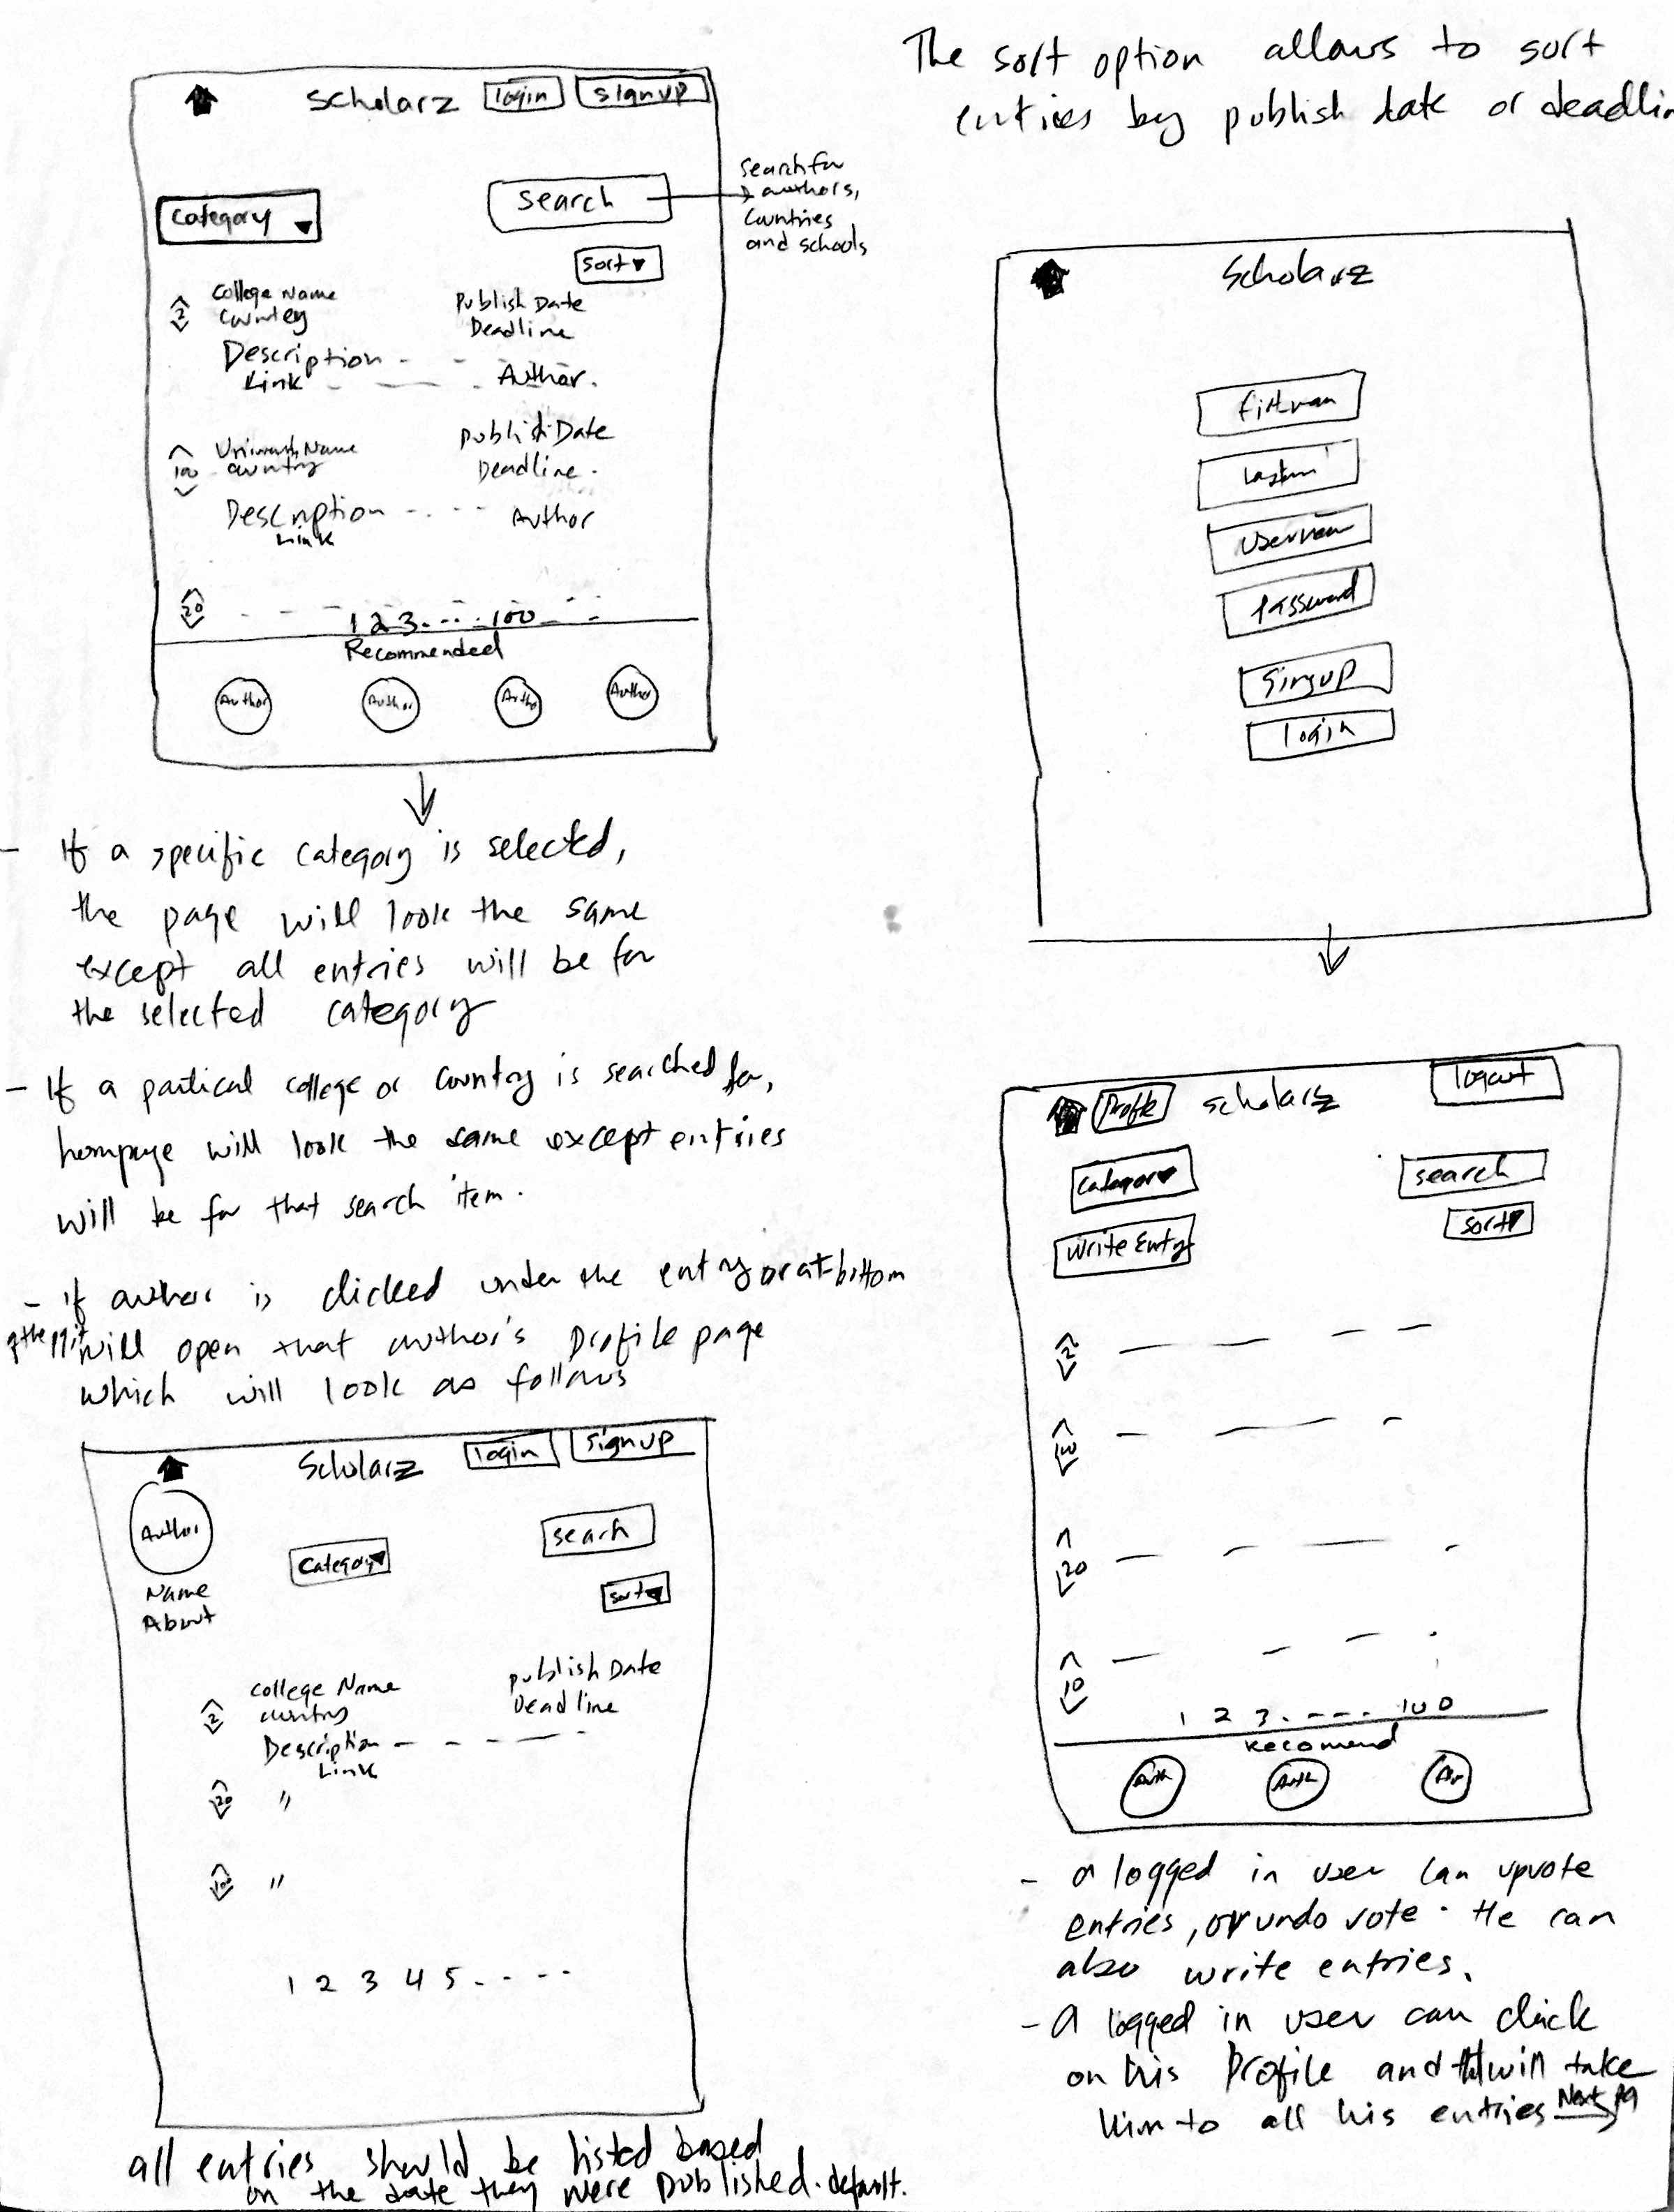 Scholarz login signup
Category
Search
Search for
authors,
Countries
and schools
Sort
2
College Name
Country
Publish Date
Deadline
Description
Link
Author.
100
Name
country
Publish Date
Deadline.
Description
Link
Author
20
1 2 3 .... 100
Recommended
Author Author Autho Author
- If a specific category is selected,
the page will look the same
except all entries will be for
the selected category
- If a partical college or country is searched for,
hompage will look the same except entries
will be for that search item.
- if author is clicked under the entry or at bottom
will open that author's profile page
which will look as follows
Scholarz login signup
Author
Name
About
Category
search
sort
2
College Name
country
publish Date
Deadline
Description
Link
20 "
100 "
1 2 3 4 5 ....
all entries should be listed based
on the date they were published. default.
The sort option allows to sort
entries by publish date or
Scholarz
password
Singup
login
Profile Scholarz logout
Category
search
Write Entry
sort
2
100
20
10
1 2 3 .---. 100
Recomend
Auth Auth
- a logged in user can upvote
entries, or undo vote. He can
also write entries.
- A logged in user can click
on his Profile and will take
him to all his entries Next Pg